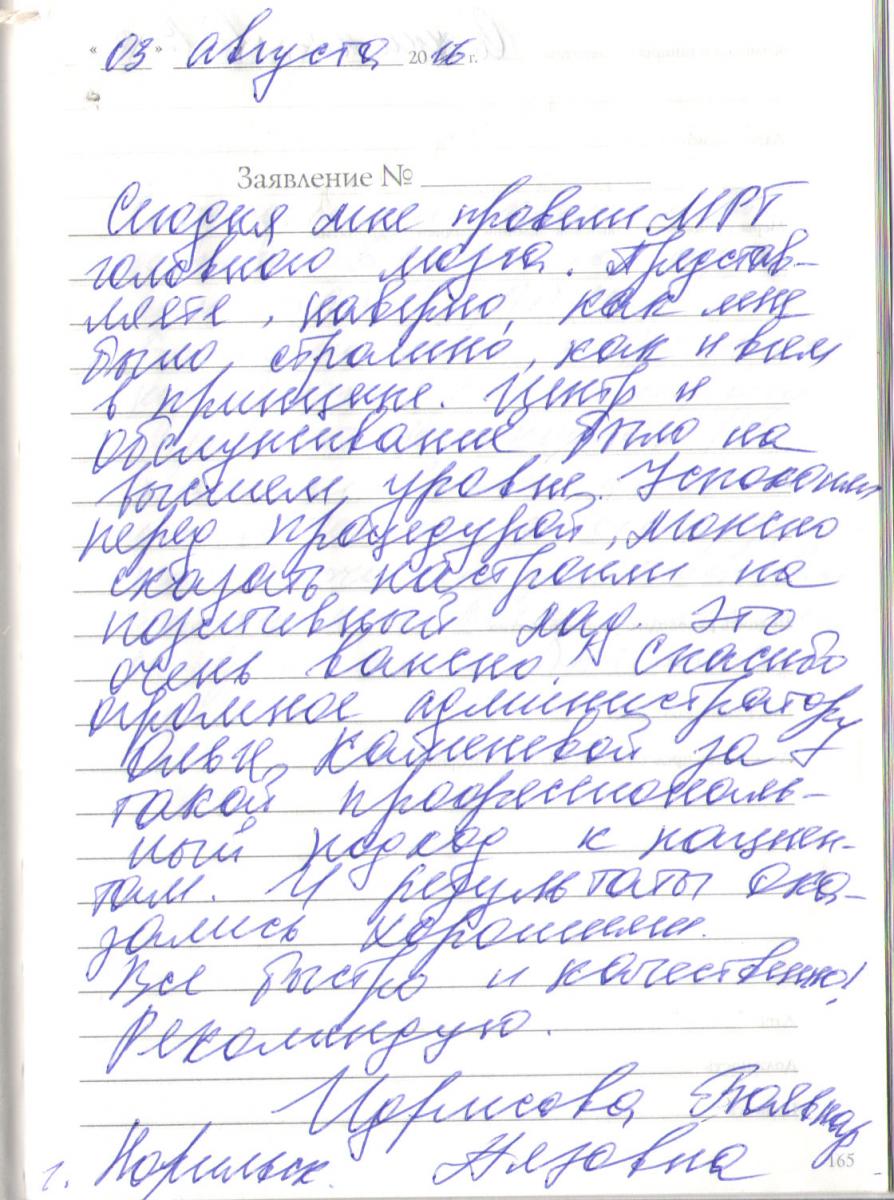 « 03 » августа 2016 г.
Заявление № 
Сегодня мне провели МРТ
головного мозга. Представ-
ляете, наверно, как мне
было страшно, как и всем
в принципе. Центр и
обслуживание было на
высшем уровне. Успокоили
перед процедурой, можно
сказать настроили на
позитивный лад. Это
очень важно. Спасибо
огромное администратору
Ольге Каменевой за
такой профессиональ-
ный подход к пациен-
там. И результаты ока-
зались хорошими.
Все быстро и качественно!
Рекомендую.
Идрисова
г. Норильск.
165